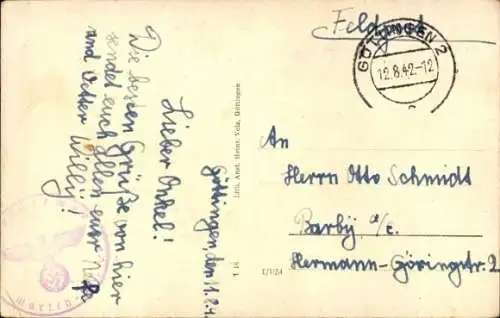 Feldpost
GÖTTINGEN 2
12.8.42-12
c
Göttingen, den 11.8.4
Lieber Onkel!
Die besten Grüße von hier
sendet euch allen euer Neffe
und Vetter Willy!
Lith. Anst. Heinr. Vola, Göttingen
An
Herrn Otto Schmidt
Barby, a/E.
Hermann-Göringstr. 2